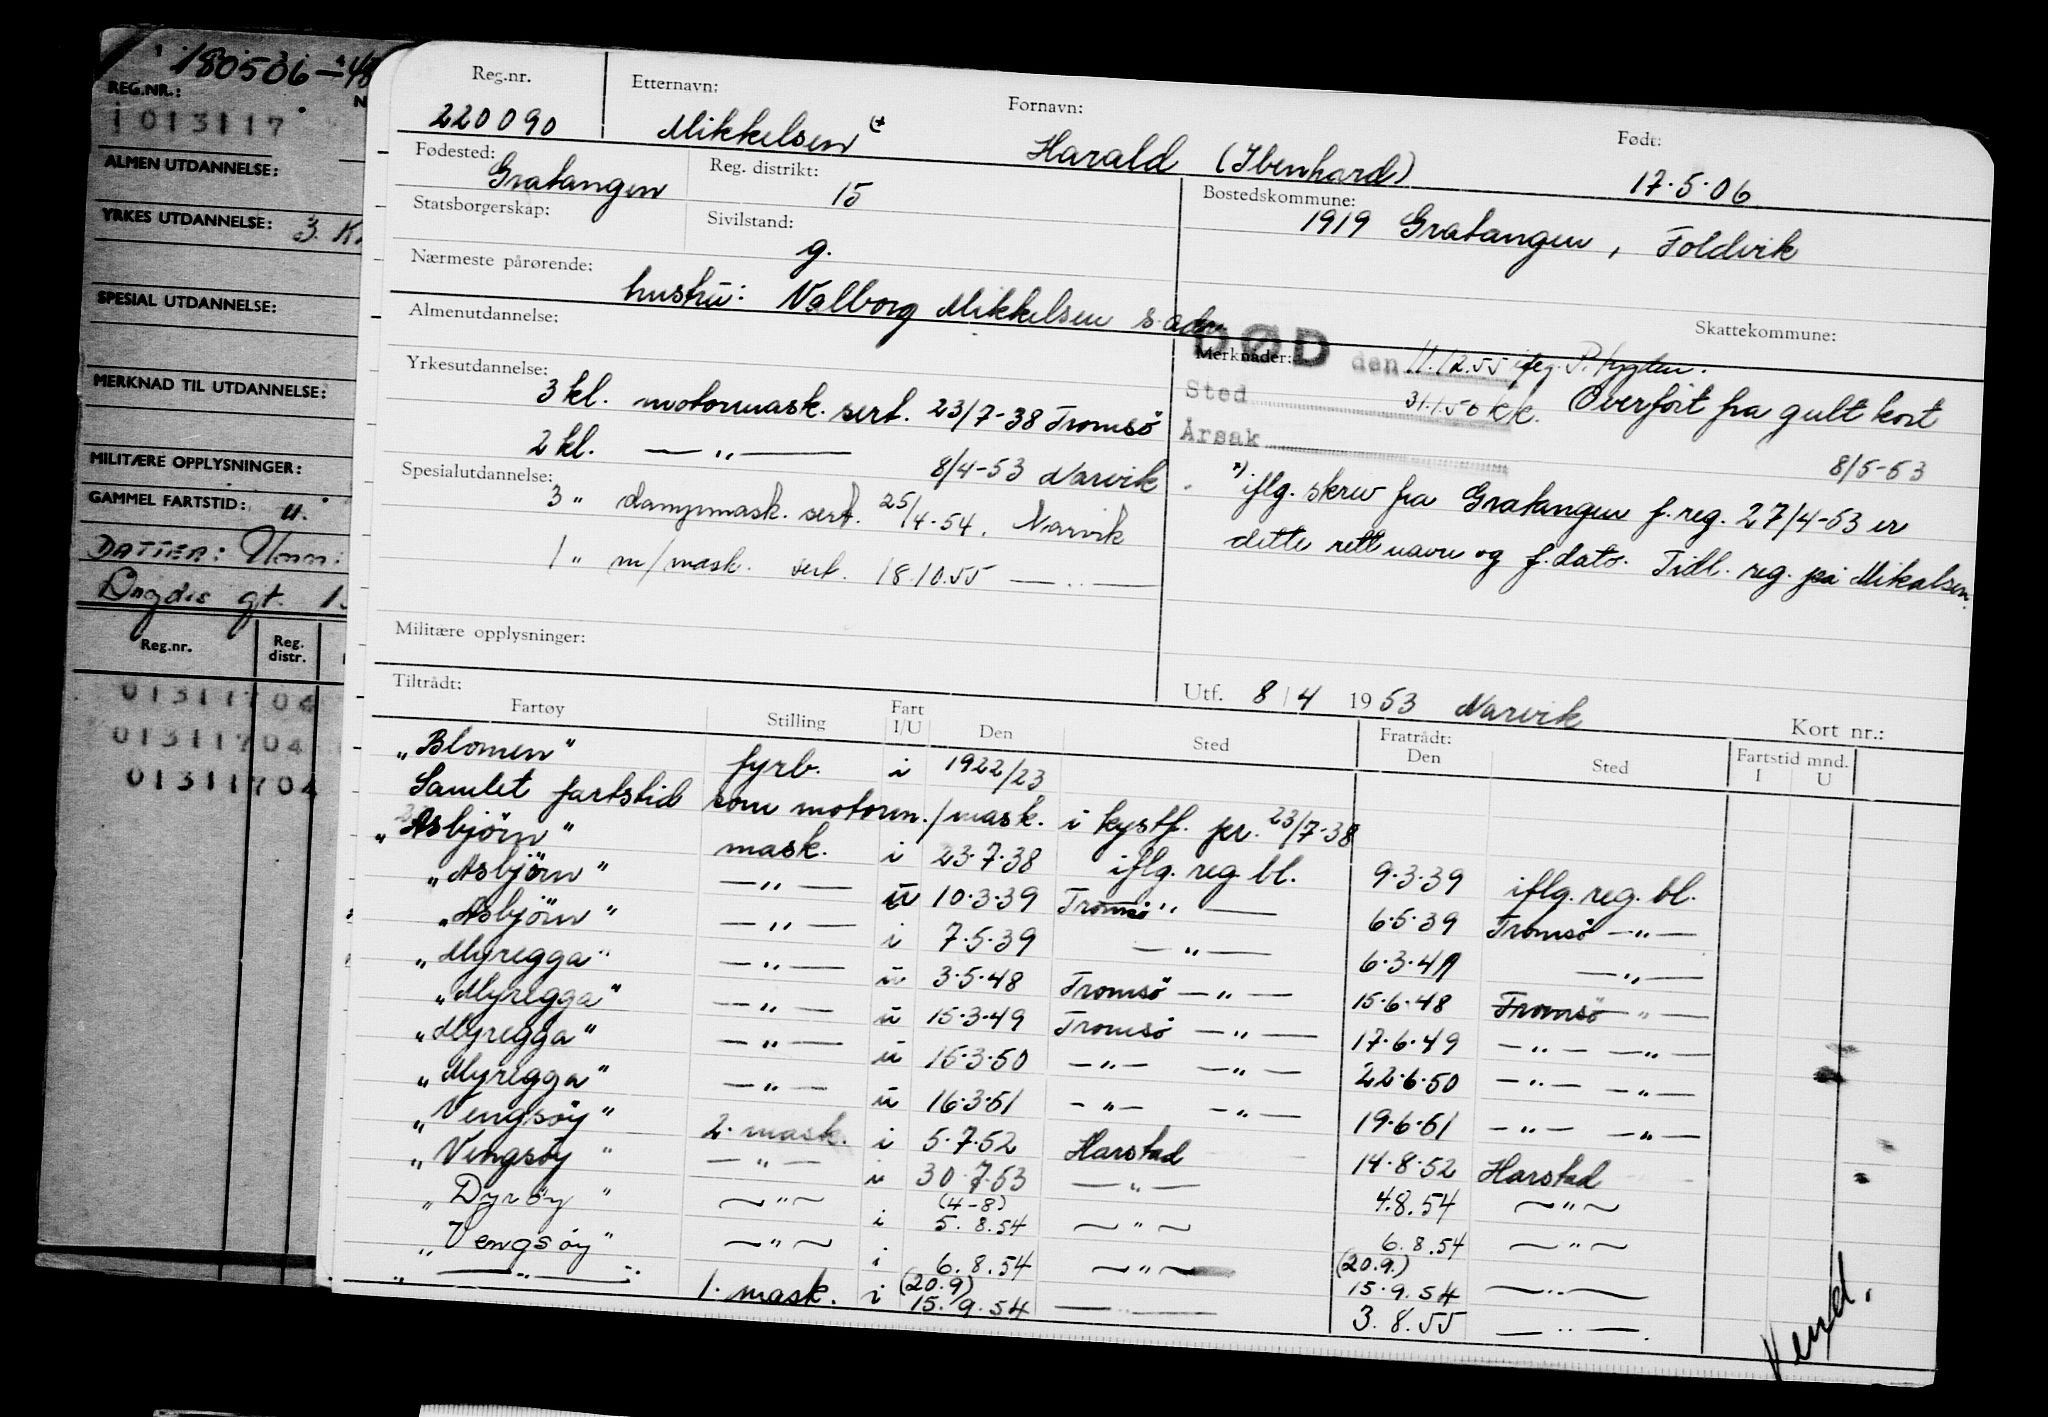 180506-48
REG.NR.:
1013117
ALMEN UTDANNELSE:
YRKES UTDANNELSE: 3. K
SPESIAL UTDANNELSE:
MERKNAD TIL UTDANNELSE:
MILITÆRE OPPLYSNINGER:
GAMMEL FARTSTID: u.
DATTER:
gt.
Reg.nr. Reg. distr.
01311704
01311704
01311704
Reg.nr. Etternavn: Fornavn: Født:
220090 Mikkelsen Harald (Ibenhard) 17.5.06
Fødested: Reg. distrikt: Bostedskommune:
Gratangen 15 1919 Gratangen, Foldvik
Statsborgerskap: Sivilstand:
g.
Nærmeste pårørende:
hustru: Valborg Mikkelsen s. adr.
Skattekommune:
Almenutdannelse: Merknader:
DØD den 11.12.55
Sted 31.1.56 kk. Overført fra gult kort
Årsak 8/5-53
Yrkesutdannelse:
3 kl. motormask. sert. 23/7-38 Tromsö
2 kl. —„— 8/4-53 Narvik
Spesialutdannelse:
3 „ dampmask. sert. 25/4-54. Narvik
1 „ m/mask. sert. 18.10.55 —„—
iflg. skriv fra Gratangen f.reg. 27/4-53 er
dette rett navn og f.dato. Tidl. reg. på Mikalsen.
Militære opplysninger:
Utf. 8/4 1953 Narvik Kort nr.:
Tiltrådt: Fratrådt:
Fartøy Stilling Fart I/U Den Sted Den Sted Fartstid mnd. I U
„Blomen" fyrb. i 1922/23
Samlet fartstid som motorm./mask. i kystf. pr. 23/7-38
„Asbjörn" mask. i 23.7.38 iflg. reg. bl. 9.3.39 iflg. reg. bl.
„Asbjörn" —„— u 10.3.39 Tromsö „ — 6.5.39 Tromsö —„—
„Asbjörn" —„— i 7.5.39 —„— 6.3.41 —„—
„Myregga" —„— u. 3.5.48 Tromsö —„— 15.6.48 Tromsö —„—
„Myregga" —„— u 15.3.49 Tromsö —„— 17.6.49 —„— —„—
„Myregga" —„— u 16.3.50 —„— —„— 22.6.50 —„— —„—
„Myregga" —„— u 16.3.51 —„— —„— 19.6.51 —„— —„—
„Vengsöy" 2. mask. i 5.7.52 Harstad 14.8.52 Harstad
„Vengsöy" —„— u 30.7.53 —„— 4.8.54 —„—
„Dyröy" —„— i (4-8) 5.8.54 —„— 6.8.54 —„—
„Vengsöy" —„— i 6.8.54 —„— (20.9.) 15.9.54 —„—
„—„— 1. mask. i (20.9) 15.9.54 —„— 3.8.55 —„—
Vend.